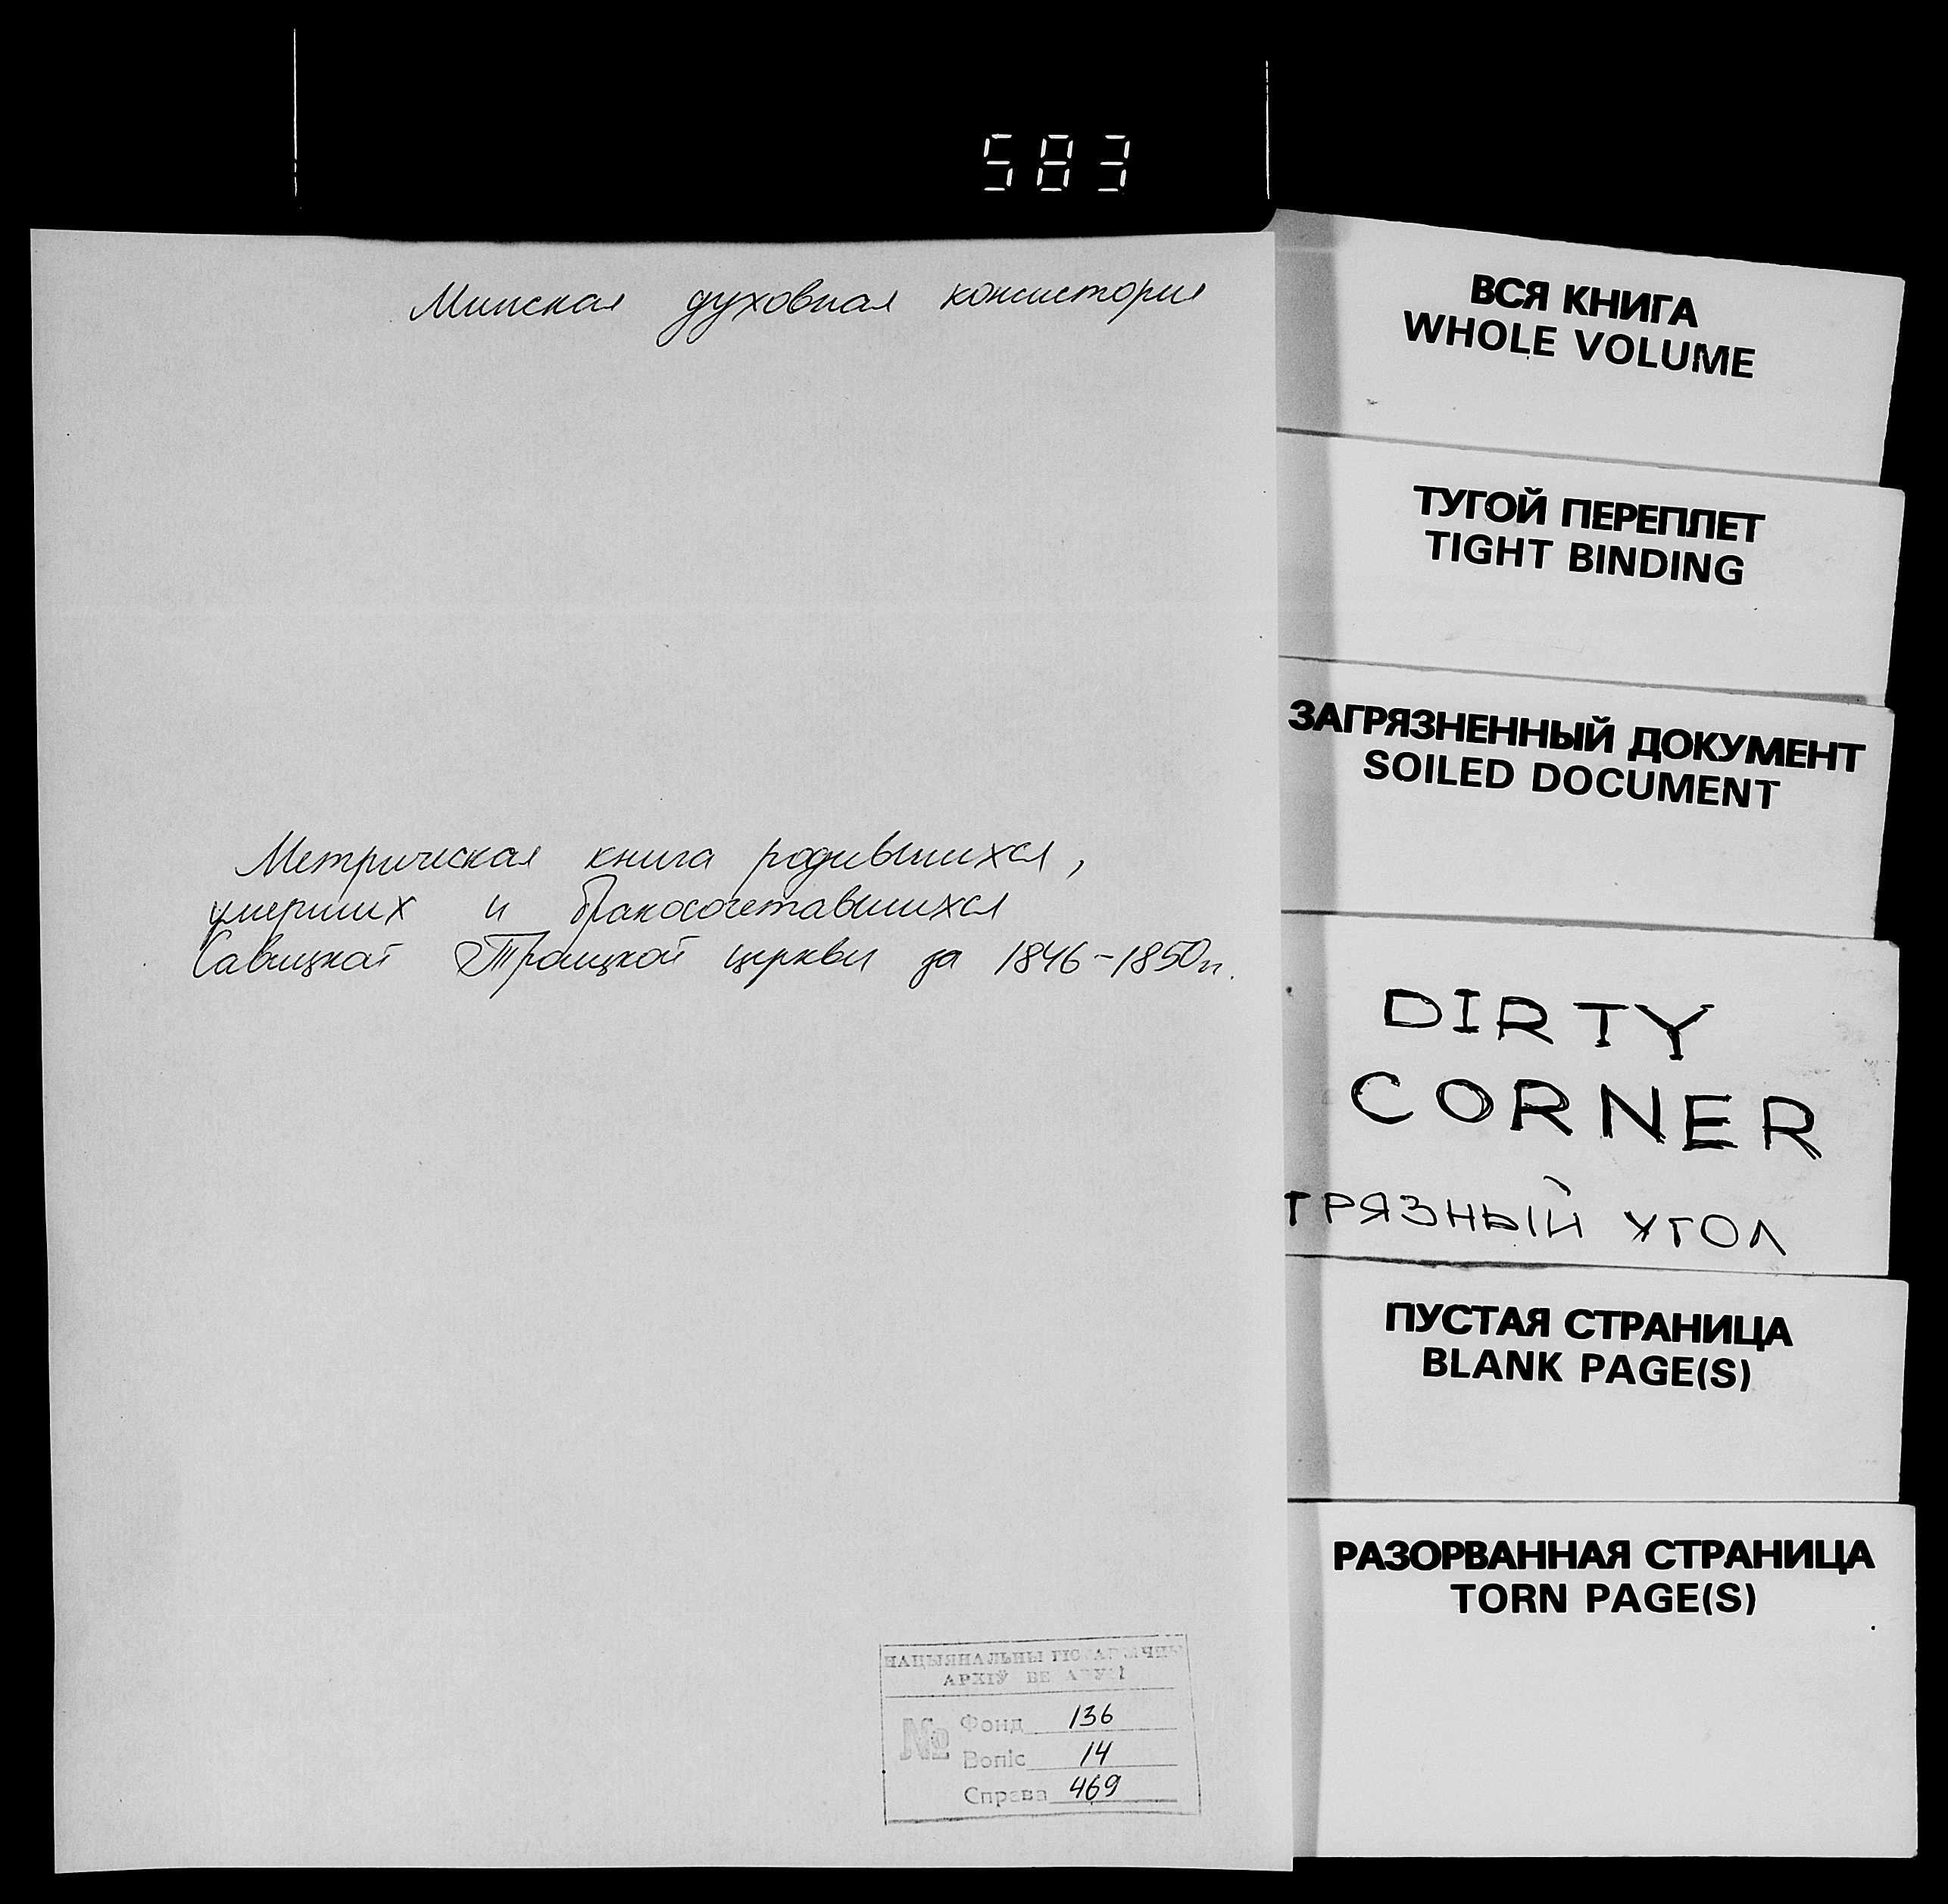 583
Минская духовная консистория
Метрическая книга родившихся,
умерших и бракосочетавшихся
Савицкой Троицкой церкви за 1846-1850гг.
НАЦЫЯНАЛЬНЫ ГІСТАРЫЧНЫ
АРХІЎ БЕЛАРУСІ
№ Фонд 136
Вопіс 14
Справа 469
ВСЯ КНИГА
WHOLE VOLUME
ТУГОЙ ПЕРЕПЛЕТ
TIGHT BINDING
ЗАГРЯЗНЕННЫЙ ДОКУМЕНТ
SOILED DOCUMENT
DIRTY
CORNER
ГРЯЗНЫЙ УГОЛ
ПУСТАЯ СТРАНИЦА
BLANK PAGE(S)
РАЗОРВАННАЯ СТРАНИЦА
TORN PAGE(S)